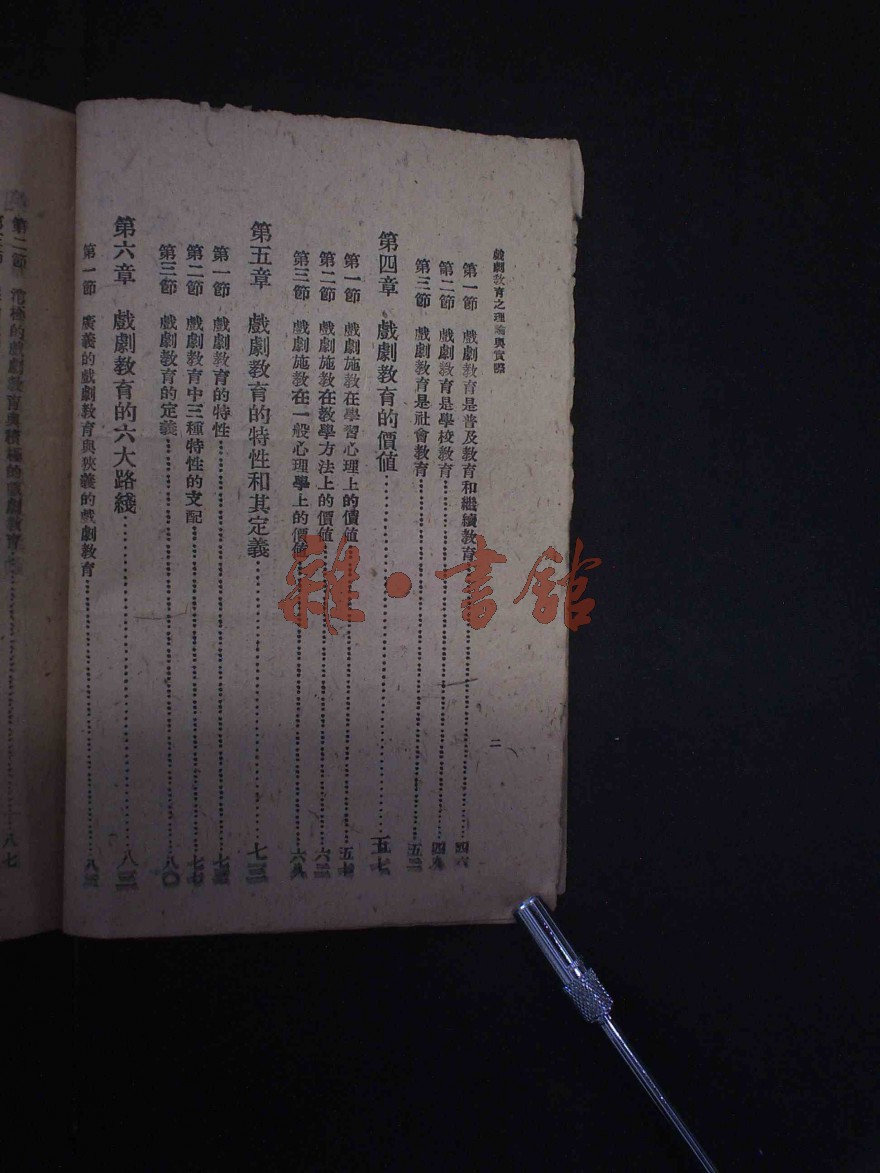 戲劇教育之理論與實際
二
第一節 戲劇教育是普及教育和繼續教育
第二節 戲劇教育是學校教育
第三節 戲劇教育是社會教育
第四章 戲劇教育的價值 五七
第一節 戲劇施教在學習心理上的價值 五七
第二節 戲劇施教在教學方法上的價值
第三節 戲劇施教在一般心理學上的價值
第五章 戲劇教育的特性和其定義 七三
第一節 戲劇教育的特性
第二節 戲劇教育中三種特性的支配
第三節 戲劇教育的定義 八〇
第六章 戲劇教育的六大路綫
第一節 廣義的戲劇教育與狹義的戲劇教育
第二節 消極的戲劇教育與積極的戲劇教育 八七
雜·書館